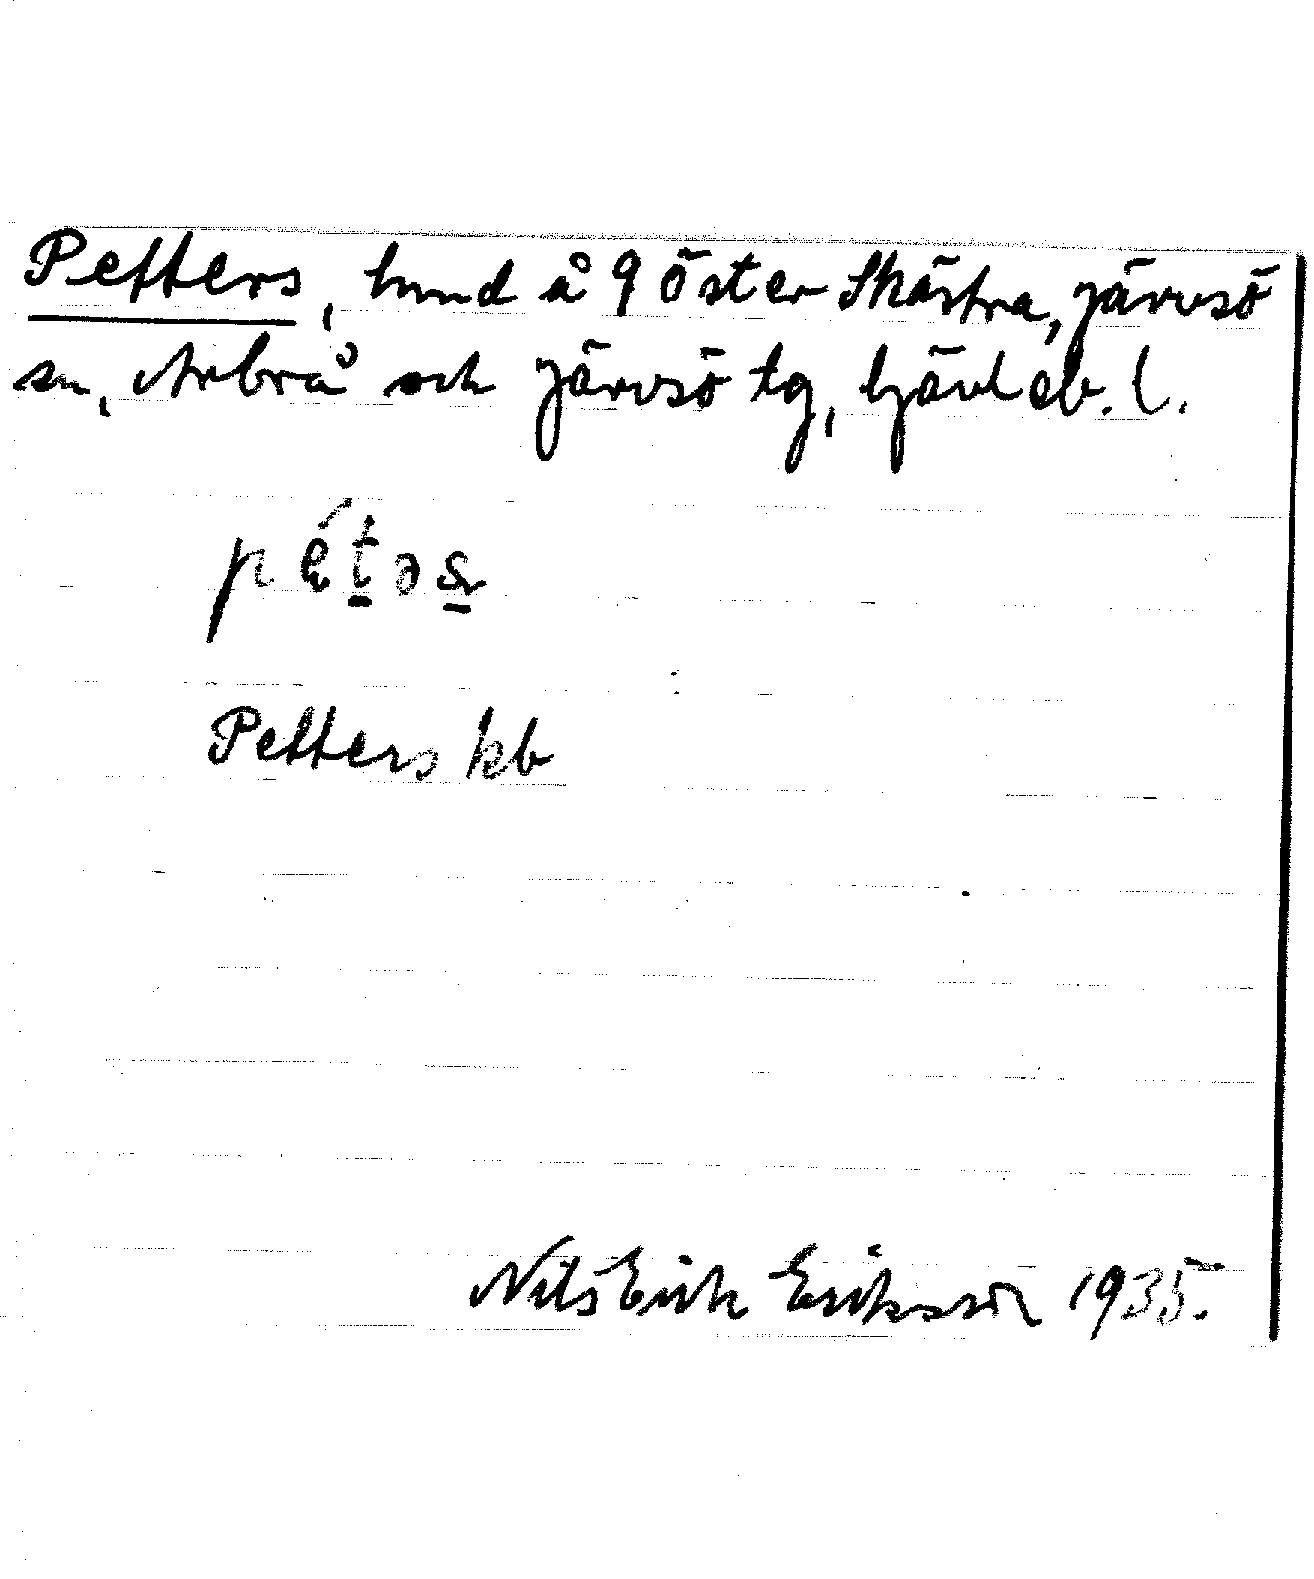 Petters, hmd å 9 Öster Skästra, Järvsö
sn, Arbrå och Järvsö tg, Gävleb. l.
pétəs
Petters kb
Nils Erik Eriksson 1935.